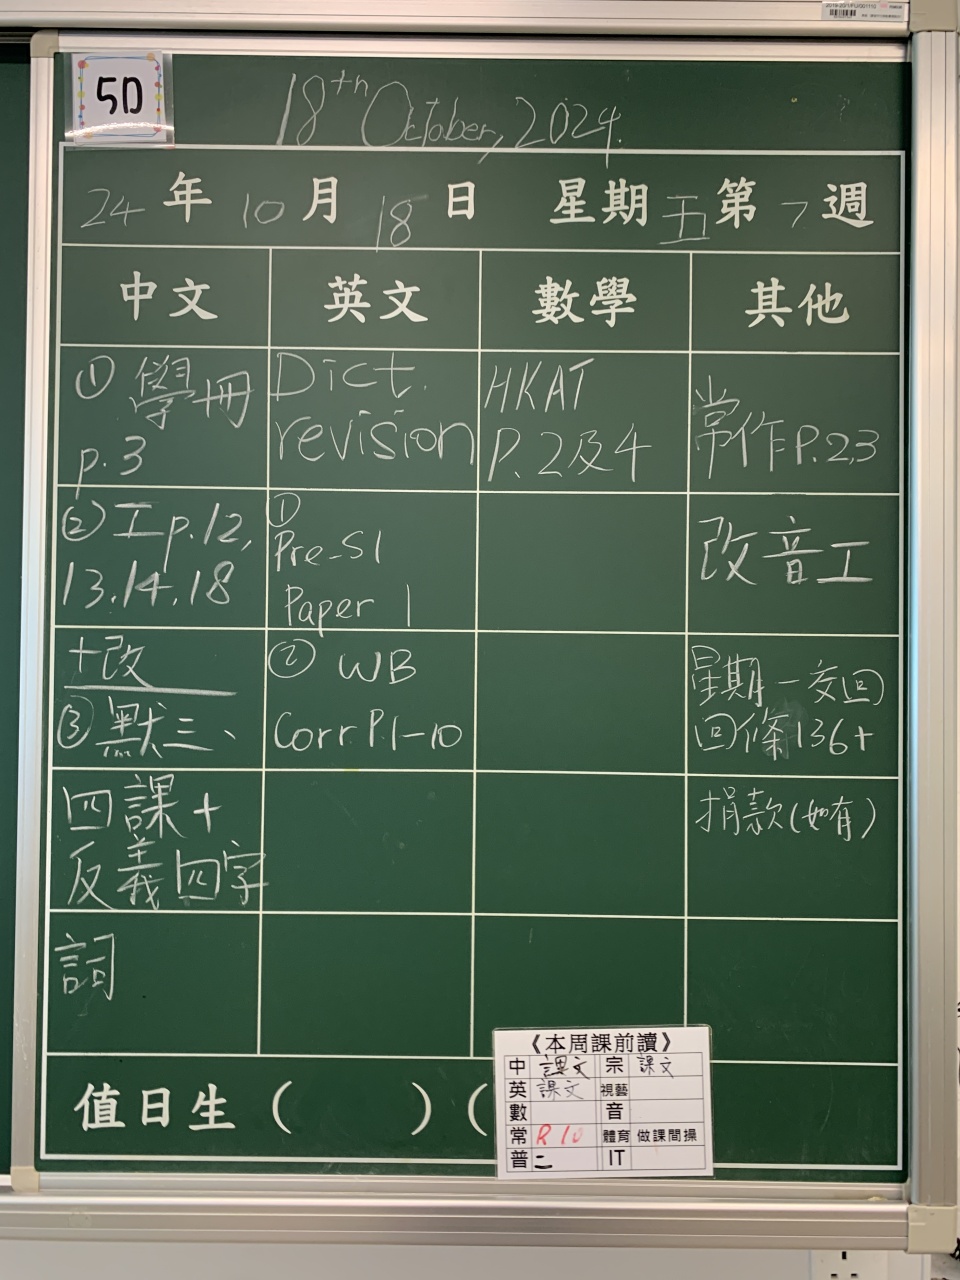 5D
18th October, 2024.
24 年 10 月 18 日 星期 五 第 7 週
中文 英文 數學 其他
① 學冊
p.3
② 工p.12,
13.14.18
+改
③ 默三、
四課+
反義四字
詞
Dict.
revision
①
Pre-S1
Paper 1
② WB
Corr P.1-10
HKAT
P.2及4
常作P.2,3
改音工
星期一交回
回條136+
捐款(如有)
值日生 ( ) (
《本周課前讀》
中 課文 宗 課文
英 課文 視藝
數 音
常 R 10 體育 做課間操
普 二 IT